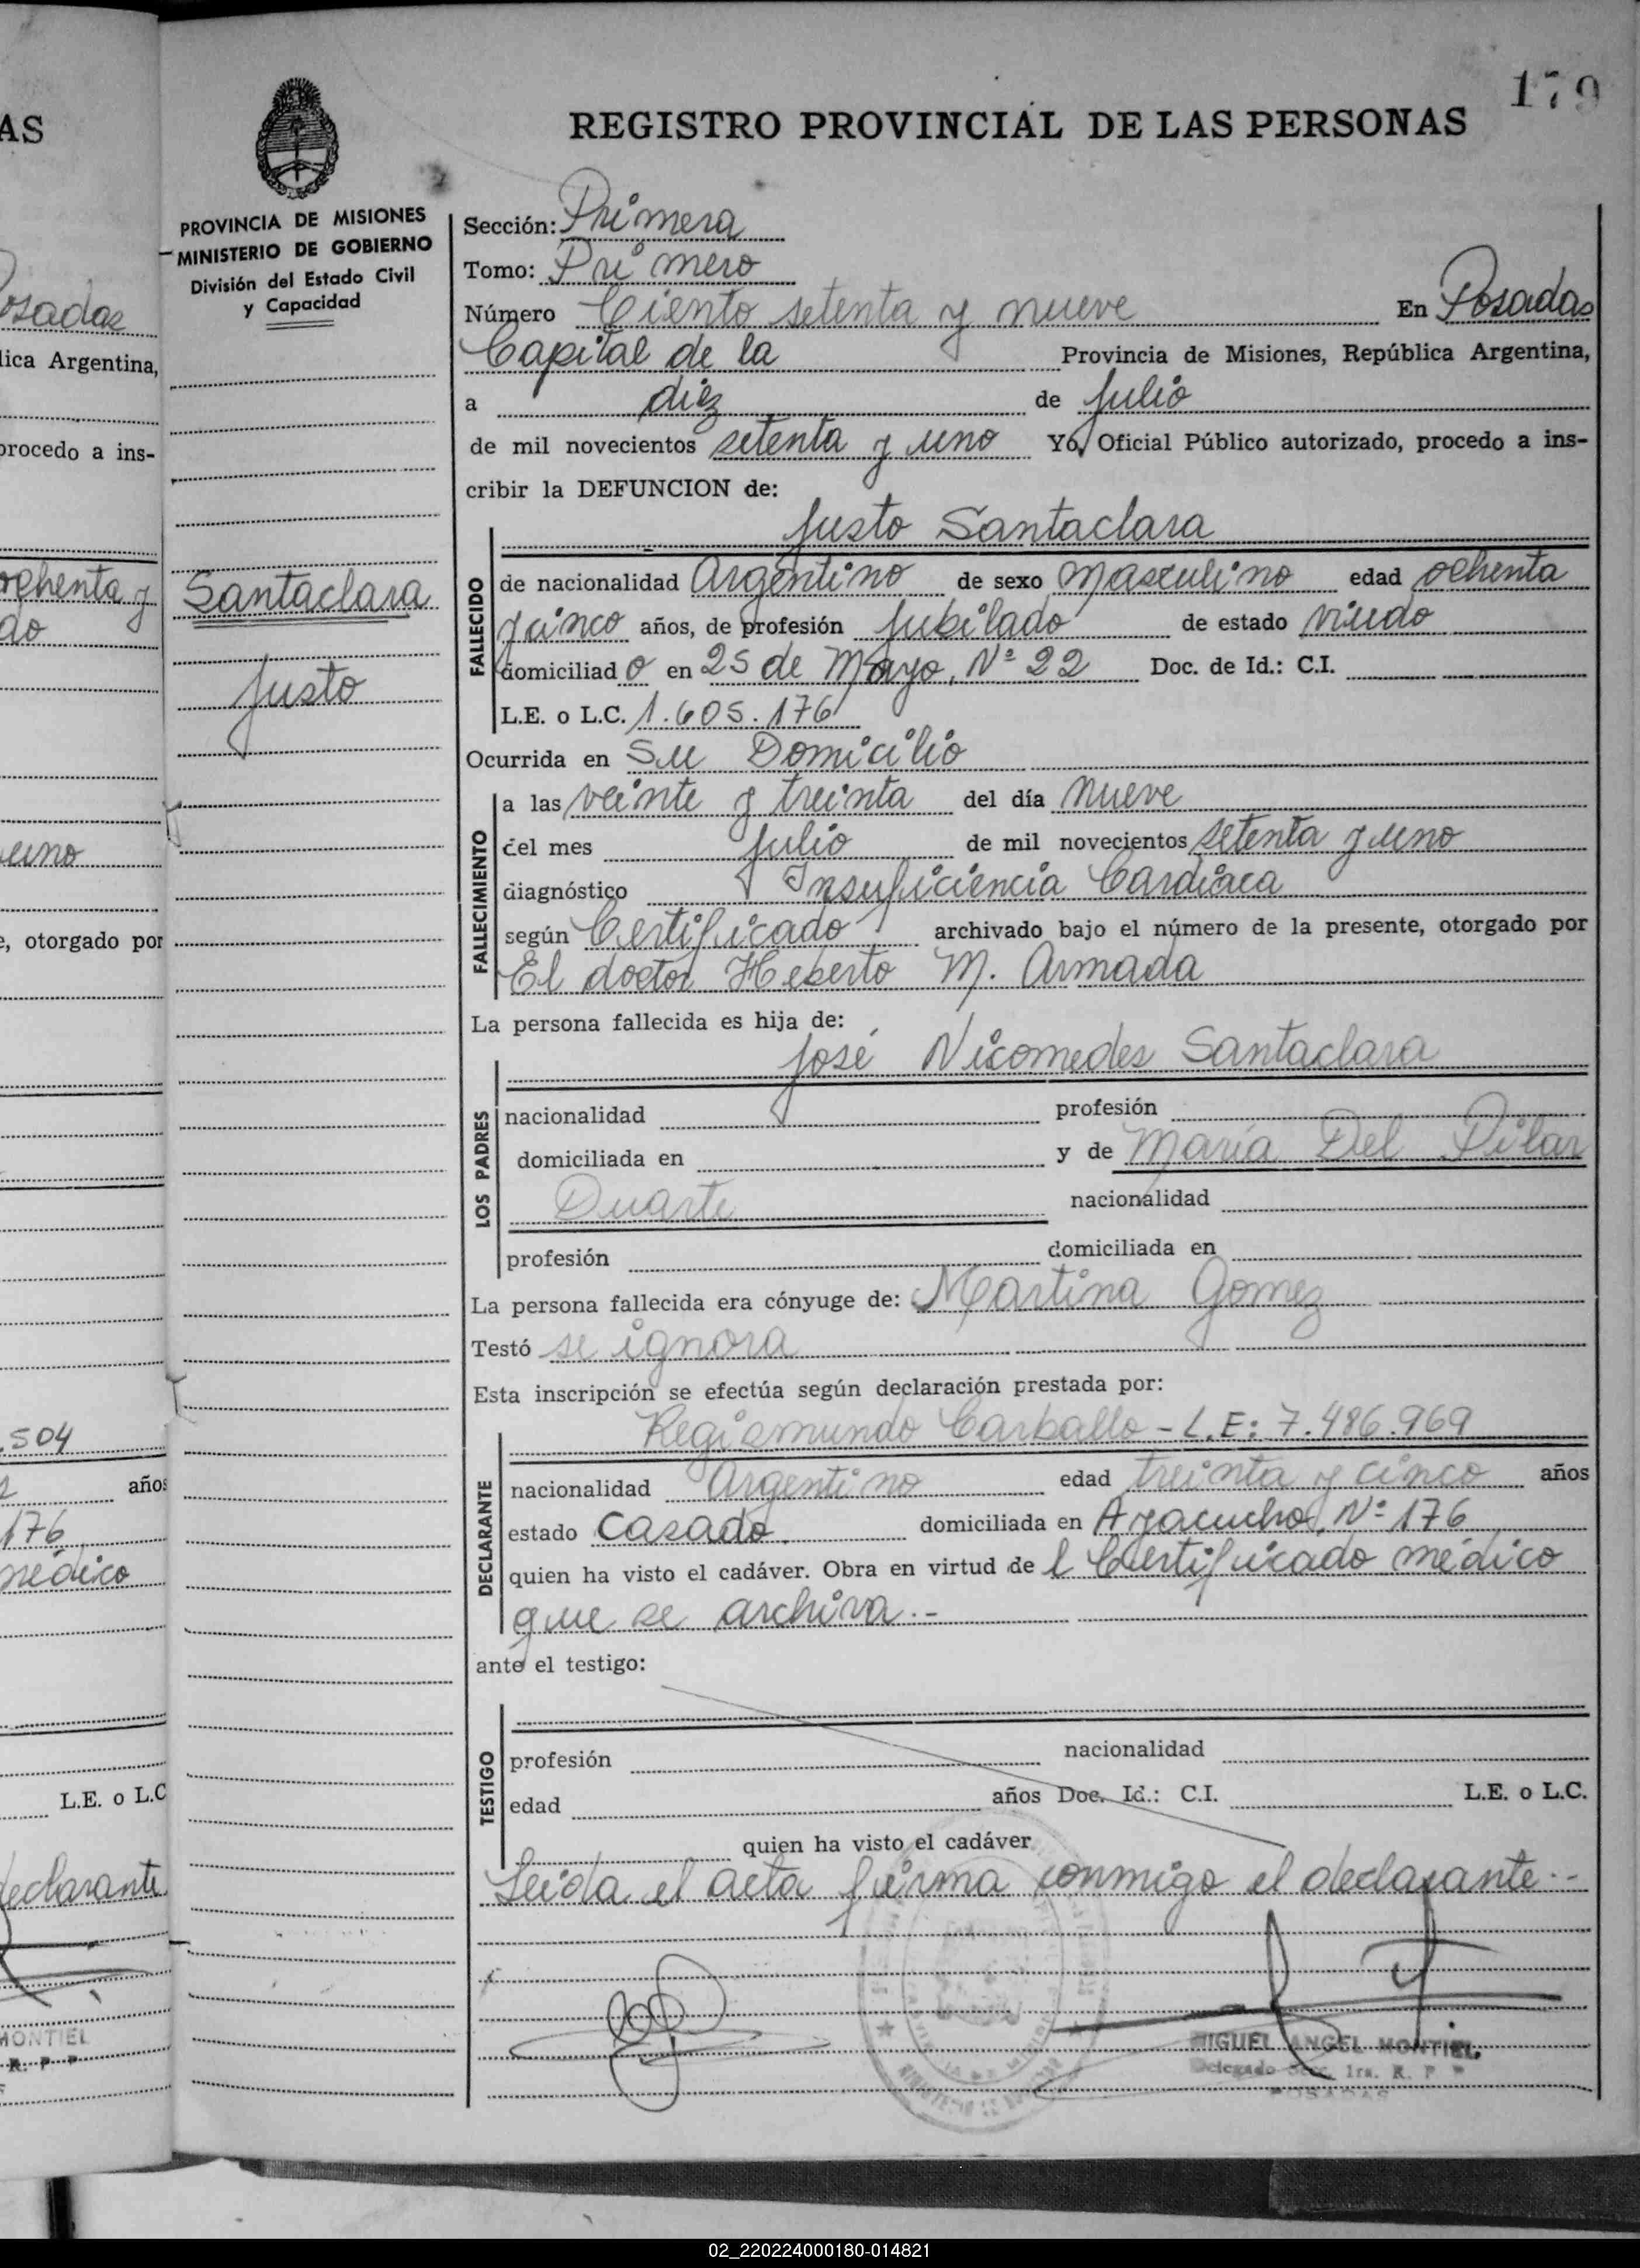 AS
osadas
lica Argentina,
procedo a ins-
ochenta y
do
uno
e, otorgado por
.504
años
176
médico
L.E. o L.C
declarante
MONTIEL
R. P P
179
REGISTRO PROVINCIAL DE LAS PERSONAS
PROVINCIA DE MISIONES
MINISTERIO DE GOBIERNO
División del Estado Civil
y Capacidad
Santaclara
Justo
Sección: Primera
Tomo: Primero
Número Ciento setenta y nueve En Posadas
Capital de la Provincia de Misiones, República Argentina,
a diez de Julio
de mil novecientos setenta y uno Yo, Oficial Público autorizado, procedo a ins-
cribir la DEFUNCION de:
Justo Santaclara
FALLECIDO
de nacionalidad Argentino de sexo Masculino edad ochenta
y cinco años, de profesión Jubilado de estado viudo
domiciliad o en 25 de Mayo, Nº 22 Doc. de Id.: C.I.
L.E. o L.C. 1.605.176
Ocurrida en Su Domicilio
FALLECIMIENTO
a las veinte y treinta del día nueve
del mes Julio de mil novecientos setenta y uno
diagnóstico Insuficiencia Cardiaca
según Certificado archivado bajo el número de la presente, otorgado por
El doctor Heberto M. Armada
La persona fallecida es hija de:
José Nicomedes Santaclara
LOS PADRES
nacionalidad profesión
domiciliada en y de María Del Pilar
Duarte nacionalidad
profesión domiciliada en
La persona fallecida era cónyuge de: Martina Gomez
Testó se ignora
Esta inscripción se efectúa según declaración prestada por:
Regismundo Carballo - L.E: 7.486.969
DECLARANTE
nacionalidad Argentino edad treinta y cinco años
estado Casado domiciliada en Ayacucho, Nº 176
quien ha visto el cadáver. Obra en virtud de l Certificado médico
que se archiva.-
ante el testigo:
TESTIGO
profesión nacionalidad
edad años Doc. Id.: C.I. L.E. o L.C.
quien ha visto el cadáver
Leida el acta firma conmigo el declarante.-
MIGUEL ANGEL MONTIEL
Delegado Secc. 1ra. R. P P
POSADAS
02_220224000180-014821